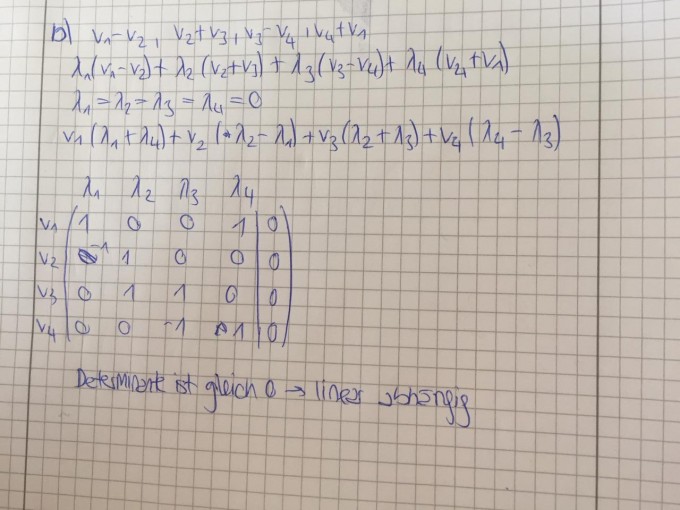 b) v₁-v₂, v₂+v₃, v₃-v₄, v₄+v₁
λ₁(v₁-v₂)+λ₂(v₂+v₃)+λ₃(v₃-v₄)+λ₄(v₄+v₁)
λ₁=λ₂=λ₃=λ₄=0
v₁(λ₁+λ₄)+v₂(λ₂-λ₁)+v₃(λ₂+λ₃)+v₄(λ₄-λ₃)
λ₁ λ₂ λ₃ λ₄
v₁ 1 0 0 1 0
v₂ -1 1 0 0 0
v₃ 0 1 1 0 0
v₄ 0 0 -1 1 0
Determinante ist gleich 0 → linear abhängig